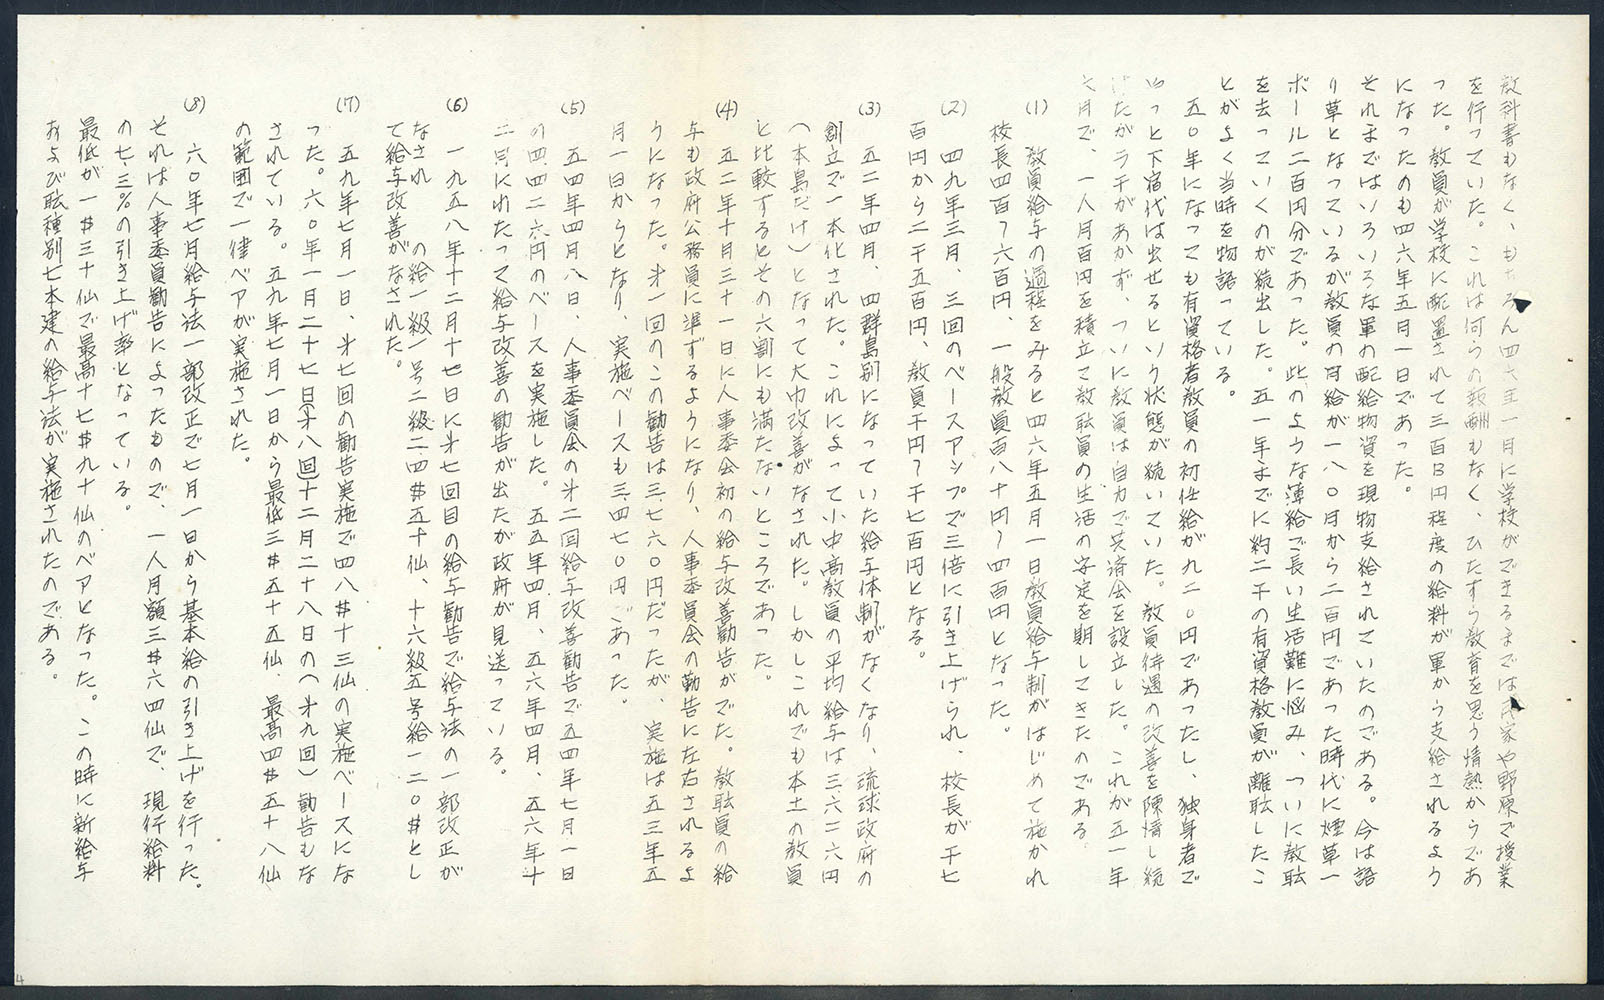 教科書もなく、もちろん四六年一月に学校ができるまでは民家や野原で授業
を行っていた。これは何らの報酬もなく、ひたすら教育を思う情熱からであ
った。教員が学校に配置されて三百B円程度の給料が軍から支給されるよう
になったのも四六年五月一日であった。
それまではいろいろな軍の配給物資を現物支給されていたのである。今は語
り草となっているが教員の月給が一八〇円から二百円であった時代に煙草一
ボール二百円分であった。此のような薄給で長い生活難に悩み、ついに教職
を去っていくのが続出した。五一年までに約二千の有資格教員が離職したこ
とがよく当時を物語っている。
五〇年になっても有資格者教員の初任給が九二〇円であったし、独身者で
やっと下宿代は出せるという状態が続いていた。教員待遇の改善を陳情し続
けたがラチがあかず、ついに教員は自力で共済会を設立した。これが五一年
七月で、一人月百円を積立て教職員の生活の安定を期してきたのである
(1) 教員給与の過程をみると四六年五月一日教員給与制がはじめて施かれ
校長四百〜六百円、一般教員百八十円〜四百円となった。
(2) 四九年三月、三回のベースアップで三倍に引き上げられ、校長が千七
百円から二千五百円、教員千円〜千七百円となる。
(3) 五二年四月、四群島別になっていた給与体制がなくなり、琉球政府の
創立で一本化された。これによって小中高教員の平均給与は三、六二六円
(本島だけ)となって大巾改善がなされた。しかしこれでも本土の教員
と比較するとその六割にも満たないところであった。
(4) 五二年十月三十一日に人事委会初の給与改善勧告がでた。教職員の給
与も政府公務員に準ずるようになり、人事委員会の勧告に左右されるよ
うになった。才一回のこの勧告は三、七六〇円だったが、実施は五三年五
月一日からとなり、実施ベースも三、四七〇円であった。
(5) 五四年四月八日、人事委員会の才二回給与改善勧告で五四年七月一日
の四、四二六円のベースを実施した。五五年四月、五六年四月、五六年十
二月にわたって給与改善の勧告が出たが政府が見送っている。
(6) 一九五八年十二月十七日に才七回目の給与勧告で給与法の一部改正が
なされ の給一級一号二級二、四$五十仙、十六級五号給一二〇$とし
て給与改善がなされた。
(7) 五九年七月一日、才七回の勧告実施で四八$十三仙の実施ベースにな
った。六〇年一月二十七日(才八回)十二月二十八日の(才九回)勧告もな
されている。五九年七月一日から最低三$五十五仙、最高四$五十八仙
の範囲で一律ベアが実施された。
(8) 六〇年七月給与法一部改正で七月一日から基本給の引き上げを行った。
それは人事委員勧告によったもので、一人月額三$六四仙で、現行給料
の七、三%の引き上げ率となっている。
最低が一$三十仙で最高十七$九十仙のベアとなった。この時に新給与
および職種別七本建の給与法が実施されたのである。
4